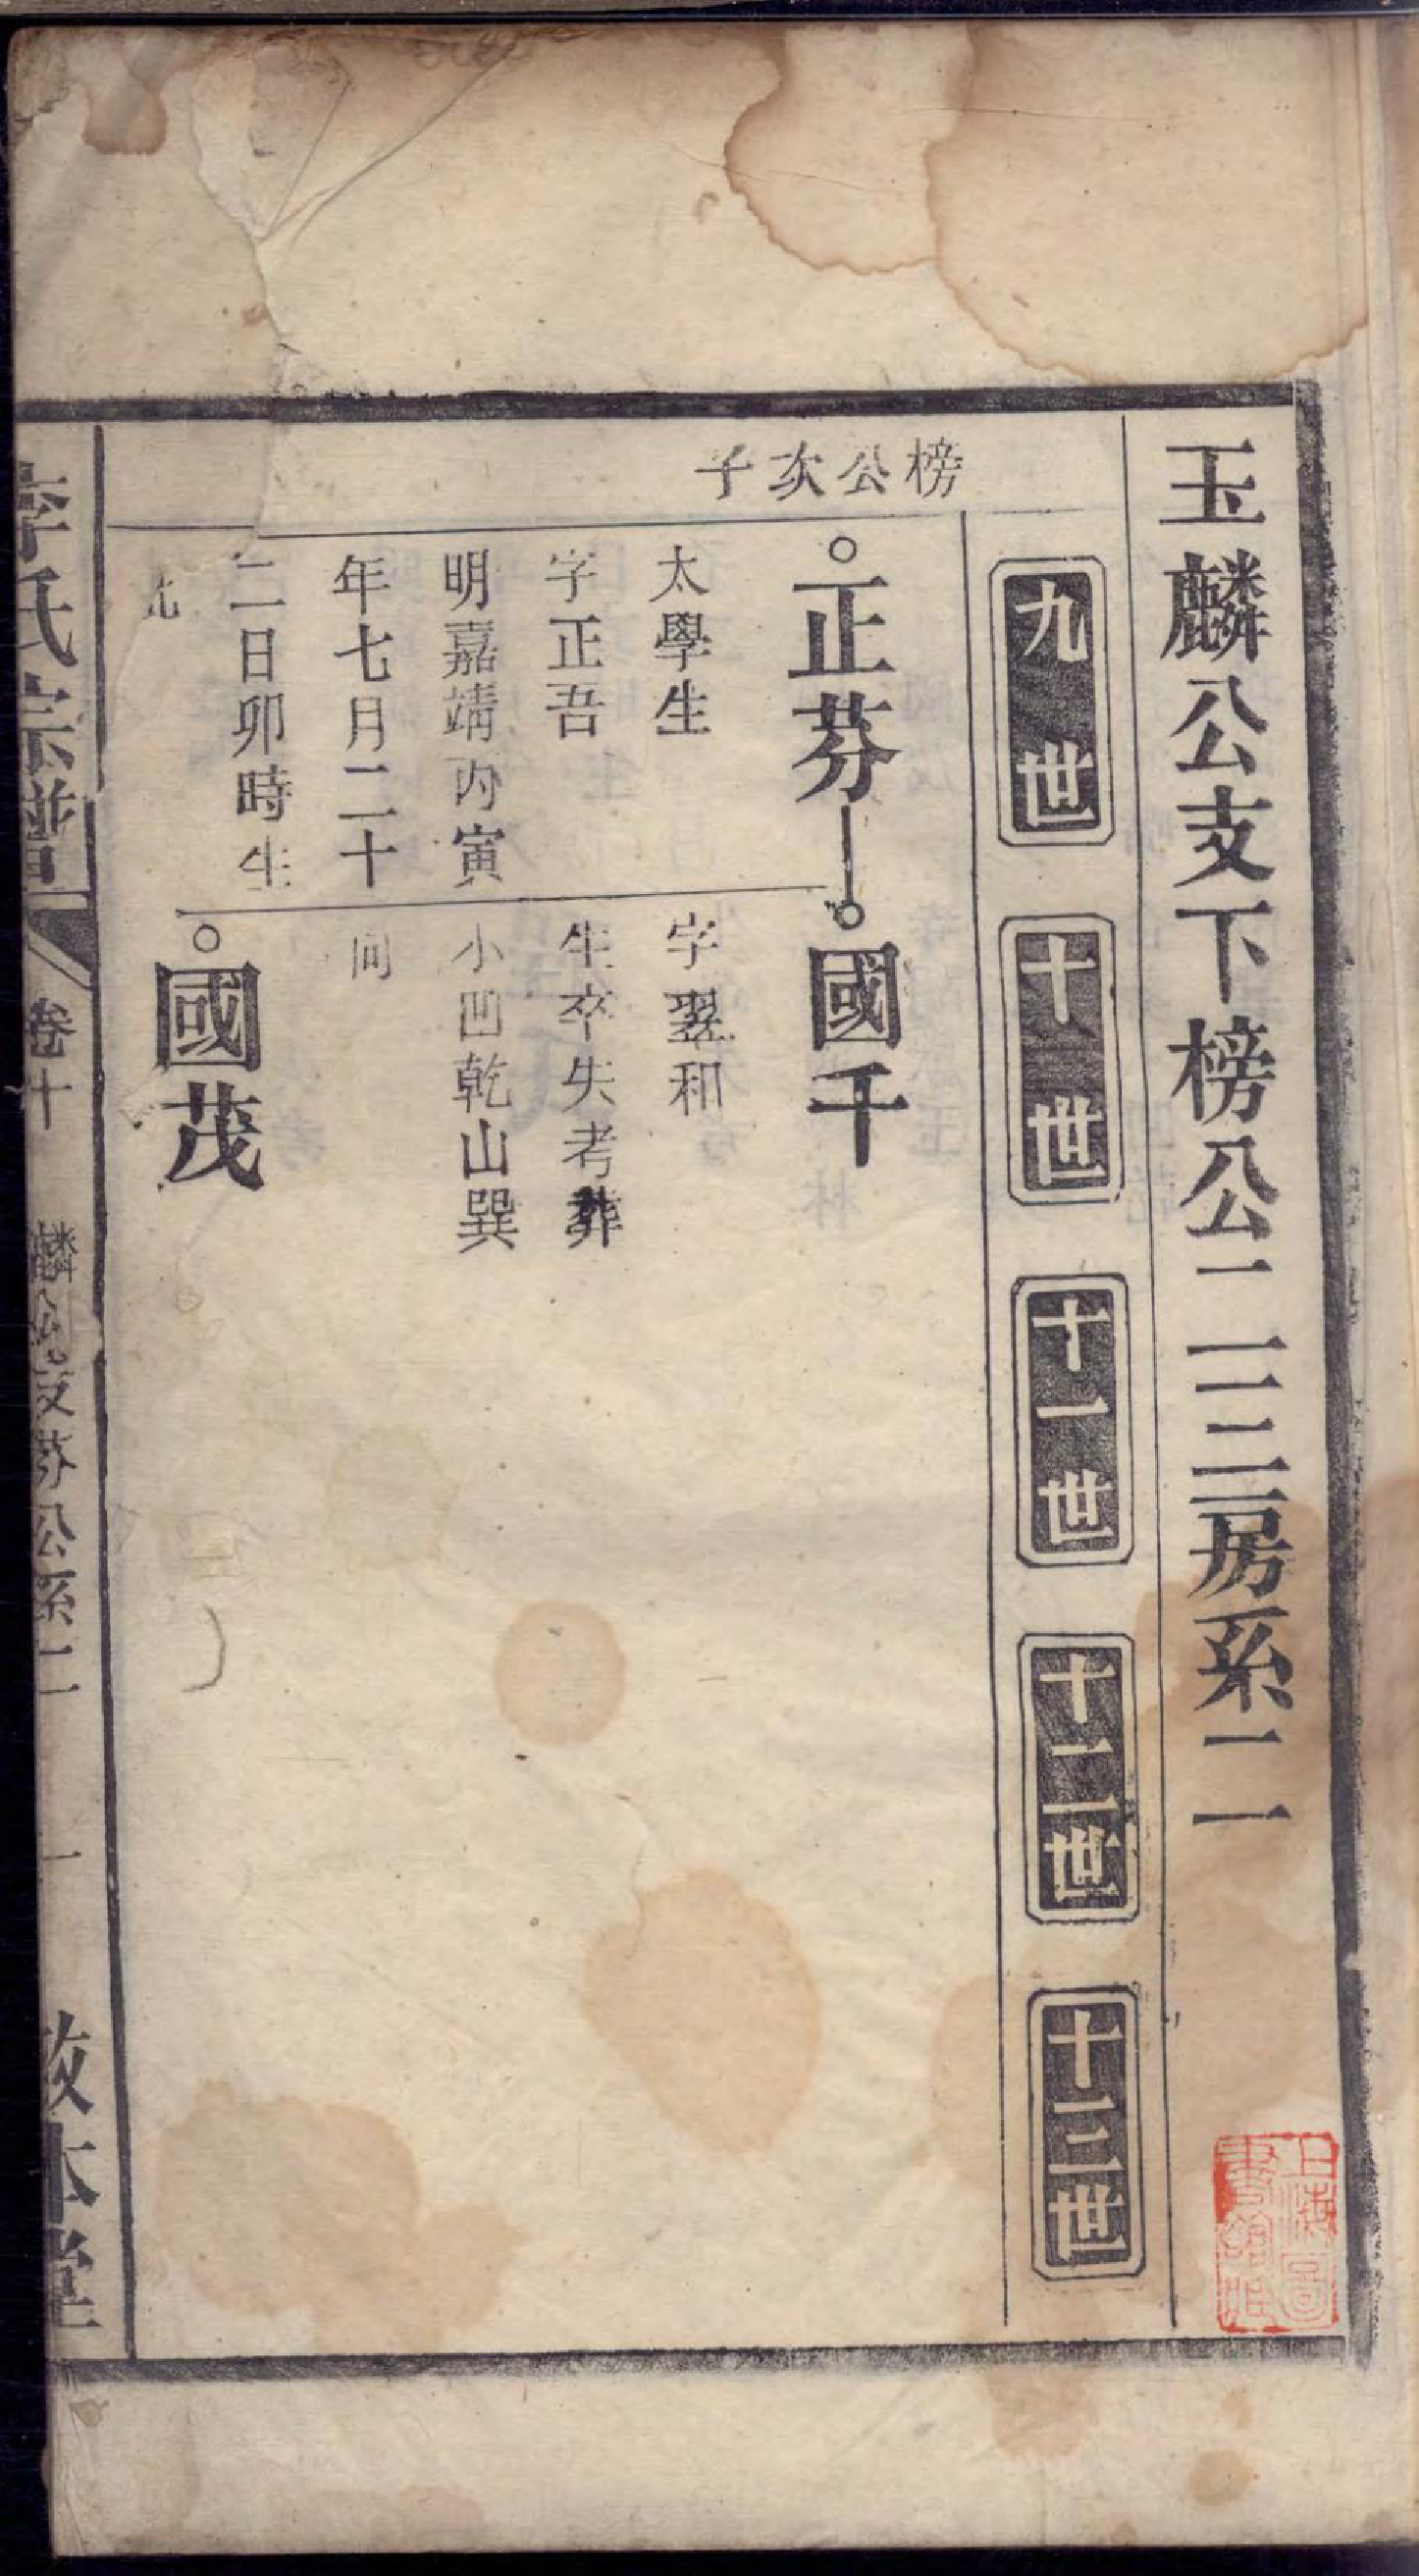 玉麟公支下榜公二三房系二
九世
十世
十一世
十二世
十三世
榜公次子
正芬
太學生
字正吾
明嘉靖丙寅
年七月二十
二日卯時生
國千
字翌和
生卒失考葬
小凹乾山巽
向
國茂
李氏宗譜
卷十
麟公支芬公系二
一
敦本堂
上海圖
書館藏